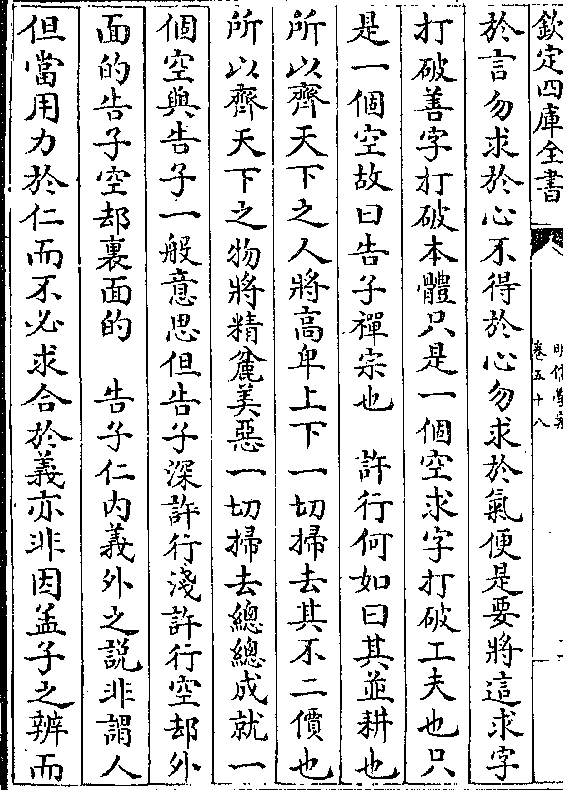 欽定四庫全書
明儒學案
卷五十八
於言勿求於心不得於心勿求於氣便是要將這求字
打破善字打破本體只是一個空求字打破工夫也只
是一個空故曰告子禪宗也　許行何如曰其並耕也
所以齊天下之人將高卑上下一切掃去其不二價也
所以齊天下之物將精麄美惡一切掃去總總成就一
個空與告子一般意思但告子深許行淺許行空却外
面的告子空却裏面的　告子仁內義外之説非謂人
但當用力於仁而不必求合於義亦非因孟子之辨而